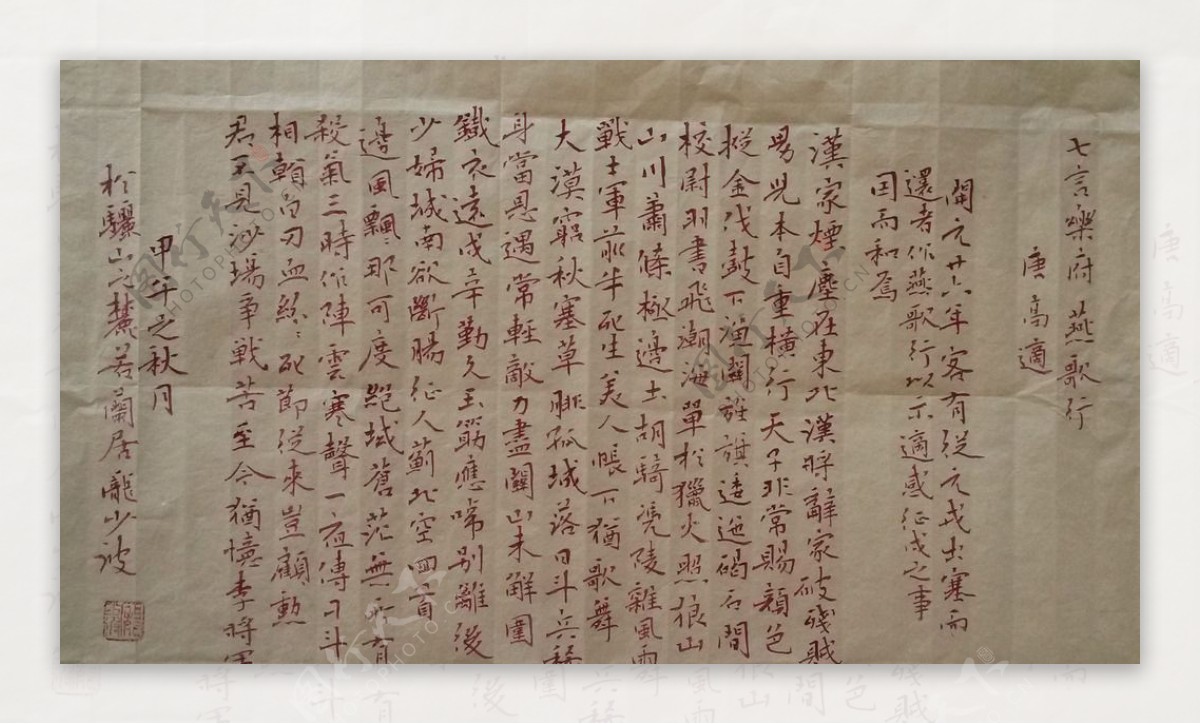 七言樂府 燕歌行
唐 高適
開元廿六年客有從元戎出塞而
還者作燕歌行以示適感征戍之事
因而和焉
漢家煙塵在東北漢將辭家破殘賊
男兒本自重橫行天子非常賜顏色
摐金伐鼓下渝關旌旗逶迤碣石間
校尉羽書飛瀚海單於獵火照狼山
山川蕭條極邊土胡騎凭陵雜風雨
戰士軍前半死生美人帳下猶歌舞
大漠窮秋塞草腓孤城落日斗兵稀
身當恩遇常輕敵力盡關山未解圍
鐵衣遠戍辛勤久玉筯應啼別離後
少婦城南欲斷腸征人薊北空回首
邊風飄〻那可度絕域蒼茫無所有
殺氣三時作陣雲寒聲一夜傳刁斗
相看白刃血紛〻死節從來豈顧勳
君不見沙場爭戰苦至今猶憶李將軍
甲午之秋月
於驪山之麓若蘭居龍少波